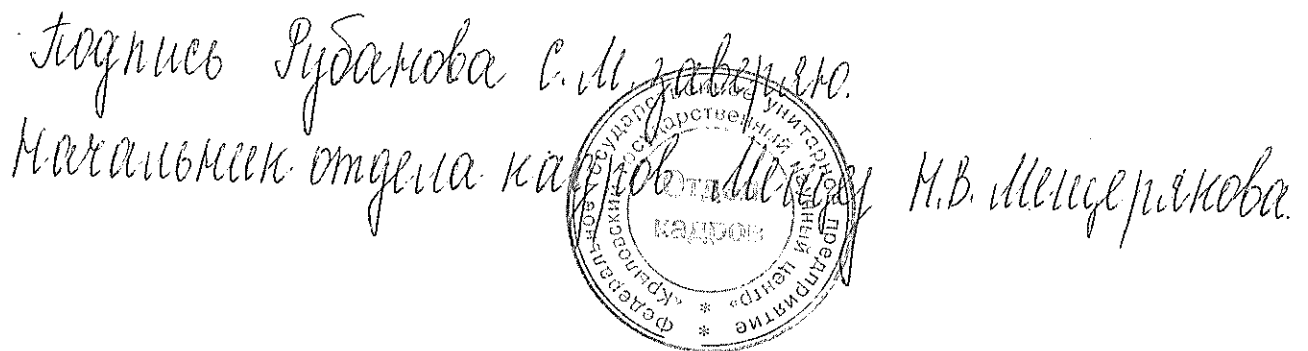 Подпись Рубанова С.М. заверяю.
Начальник отдела кадров Н.В. Мещерякова.
Федеральное государственное унитарное предприятие
«Крыловский государственный научный центр»
Отдел
кадров